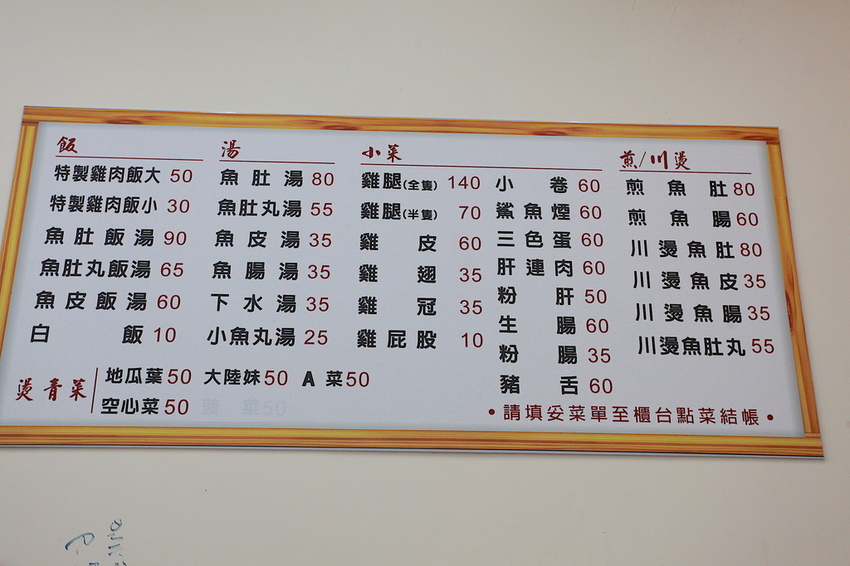 飯
特製雞肉飯大 50
特製雞肉飯小 30
魚肚飯湯 90
魚肚丸飯湯 65
魚皮飯湯 60
白飯 10
湯
魚肚湯 80
魚肚丸湯 55
魚皮湯 35
魚腸湯 35
下水湯 35
小魚丸湯 25
小菜
雞腿(全隻) 140
雞腿(半隻) 70
雞皮 60
雞翅 35
雞冠 35
雞屁股 10
小卷 60
鯊魚煙 60
三色蛋 60
肝連肉 60
粉肝 50
生腸 60
粉腸 35
豬舌 60
煎/川燙
煎魚肚 80
煎魚腸 60
川燙魚肚 80
川燙魚皮 35
川燙魚腸 35
川燙魚肚丸 55
燙青菜
地瓜葉50 大陸妹50 A菜50
空心菜50 菠菜50
•請填妥菜單至櫃台點菜結帳•